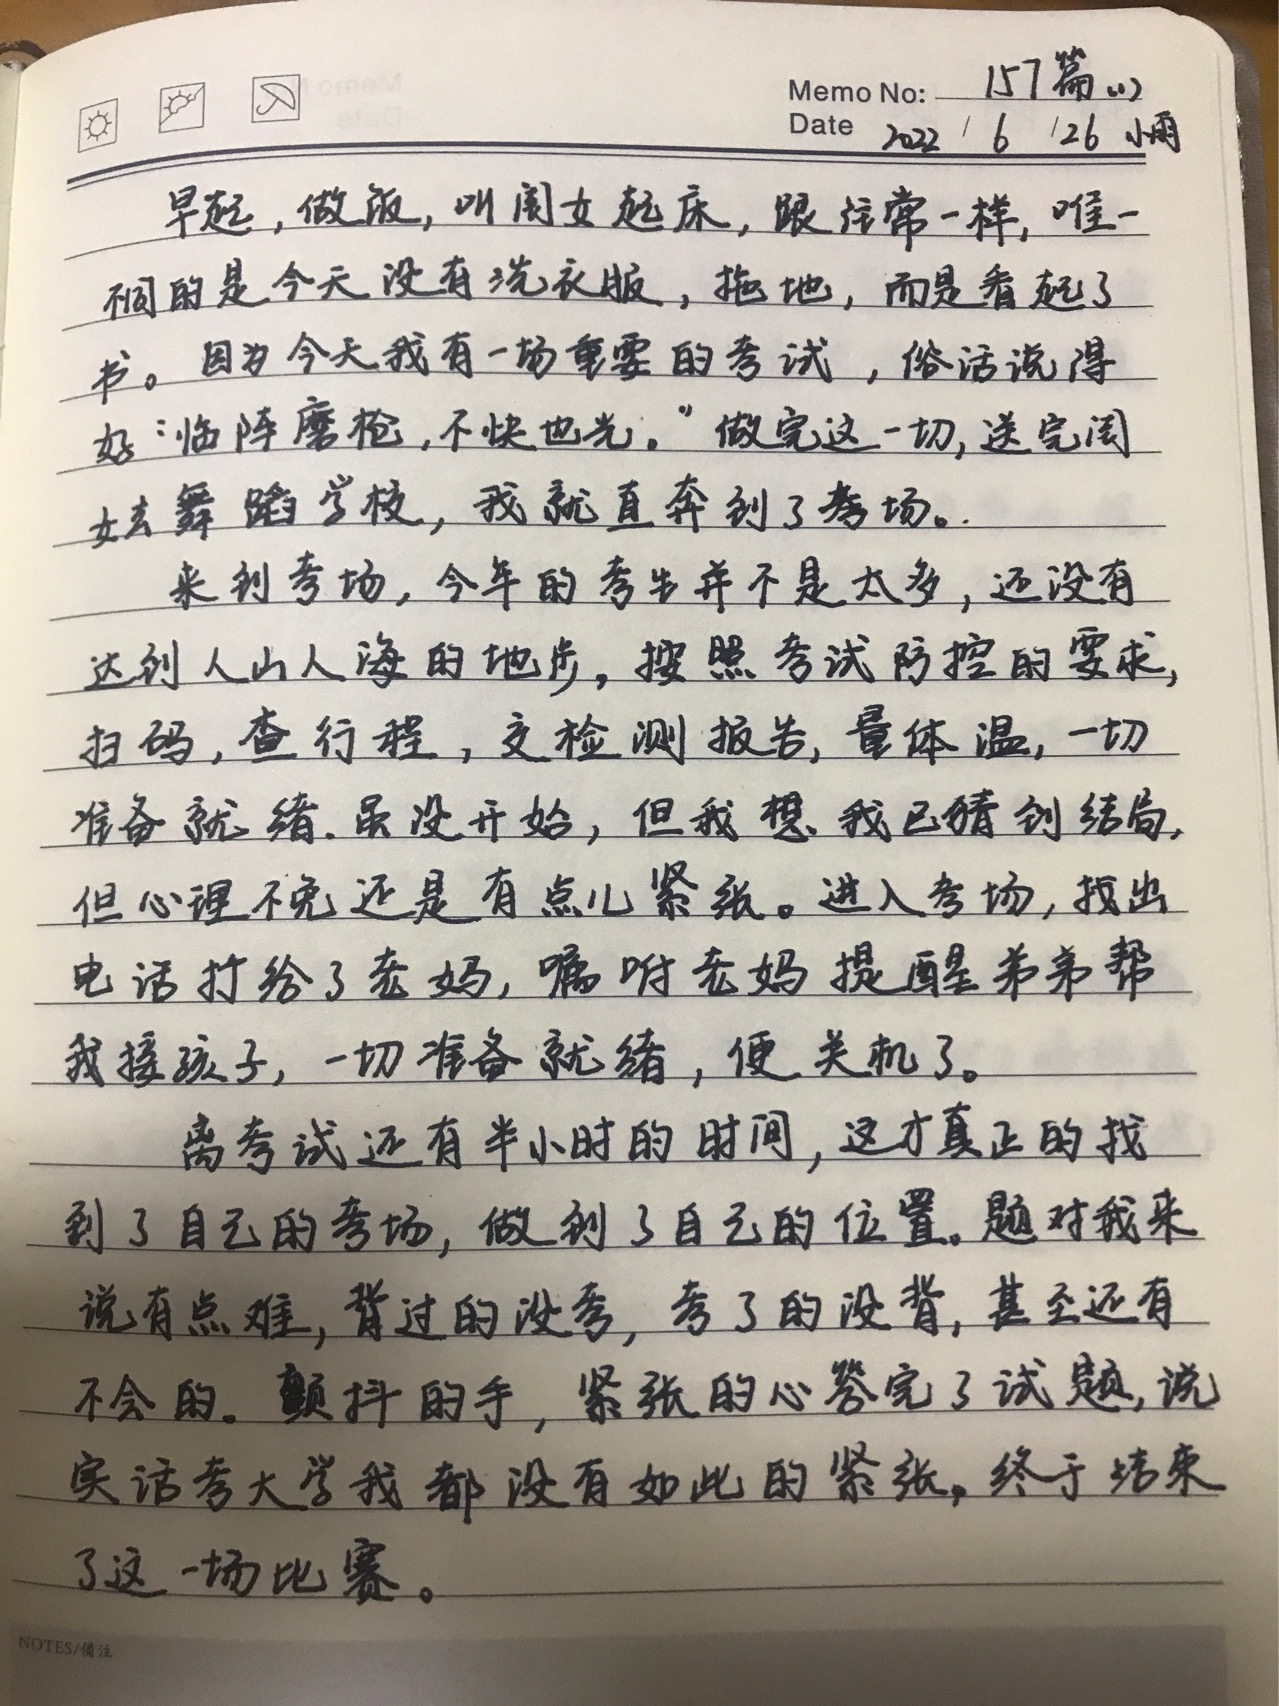 Memo No: 157篇(1)
Date 2022 / 6 / 26 小雨
早起，做饭，叫闺女起床，跟往常一样，唯一
不同的是今天没有洗衣服，拖地，而是看起了
书。因为今天我有一场重要的考试，俗话说得
好："临阵磨枪，不快也光。"做完这一切，送完闺
女去舞蹈学校，我就直奔到了考场。
来到考场，今年的考生并不是太多，还没有
达到人山人海的地步，按照考试防控的要求，
扫码，查行程，交检测报告，量体温，一切
准备就绪.虽没开始，但我想、我已猜到结局，
但心理不免还是有点儿紧张。进入考场，找出
电话打给了老妈，嘱咐老妈提醒弟弟帮
我接孩子，一切准备就绪，便关机了。
离考试还有半小时的时间，这才真正的找
到了自己的考场，做到了自己的位置。题对我来
说有点难，背过的没考，考了的没背，甚至还有
不会的。颤抖的手，紧张的心答完了试题，说
实话考大学我都没有如此的紧张，终于结束
了这一场比赛。
NOTES/備注